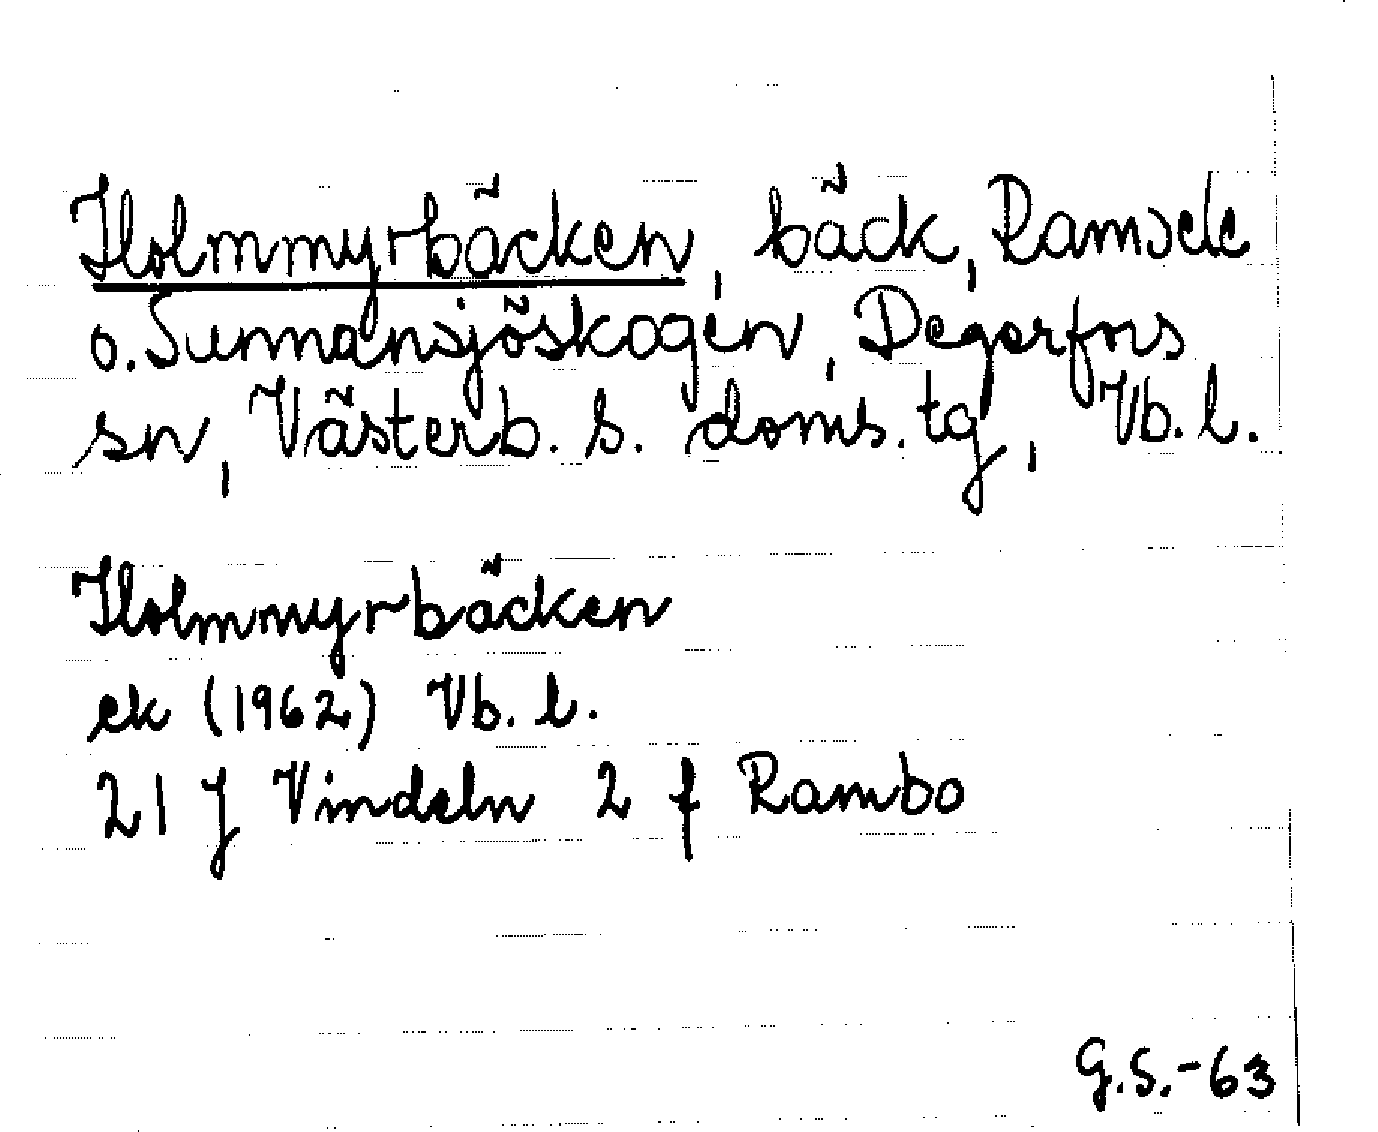 Holmmyrbäcken, bäck, Ramsele
o. Sunnansjöskogen, Degerfors
sn, Västerb. s. doms. tg, Vb. l.
Holmmyrbäcken
ek (1962) Vb. l.
21 J Vindeln 2 f Rambo
G.S.-63